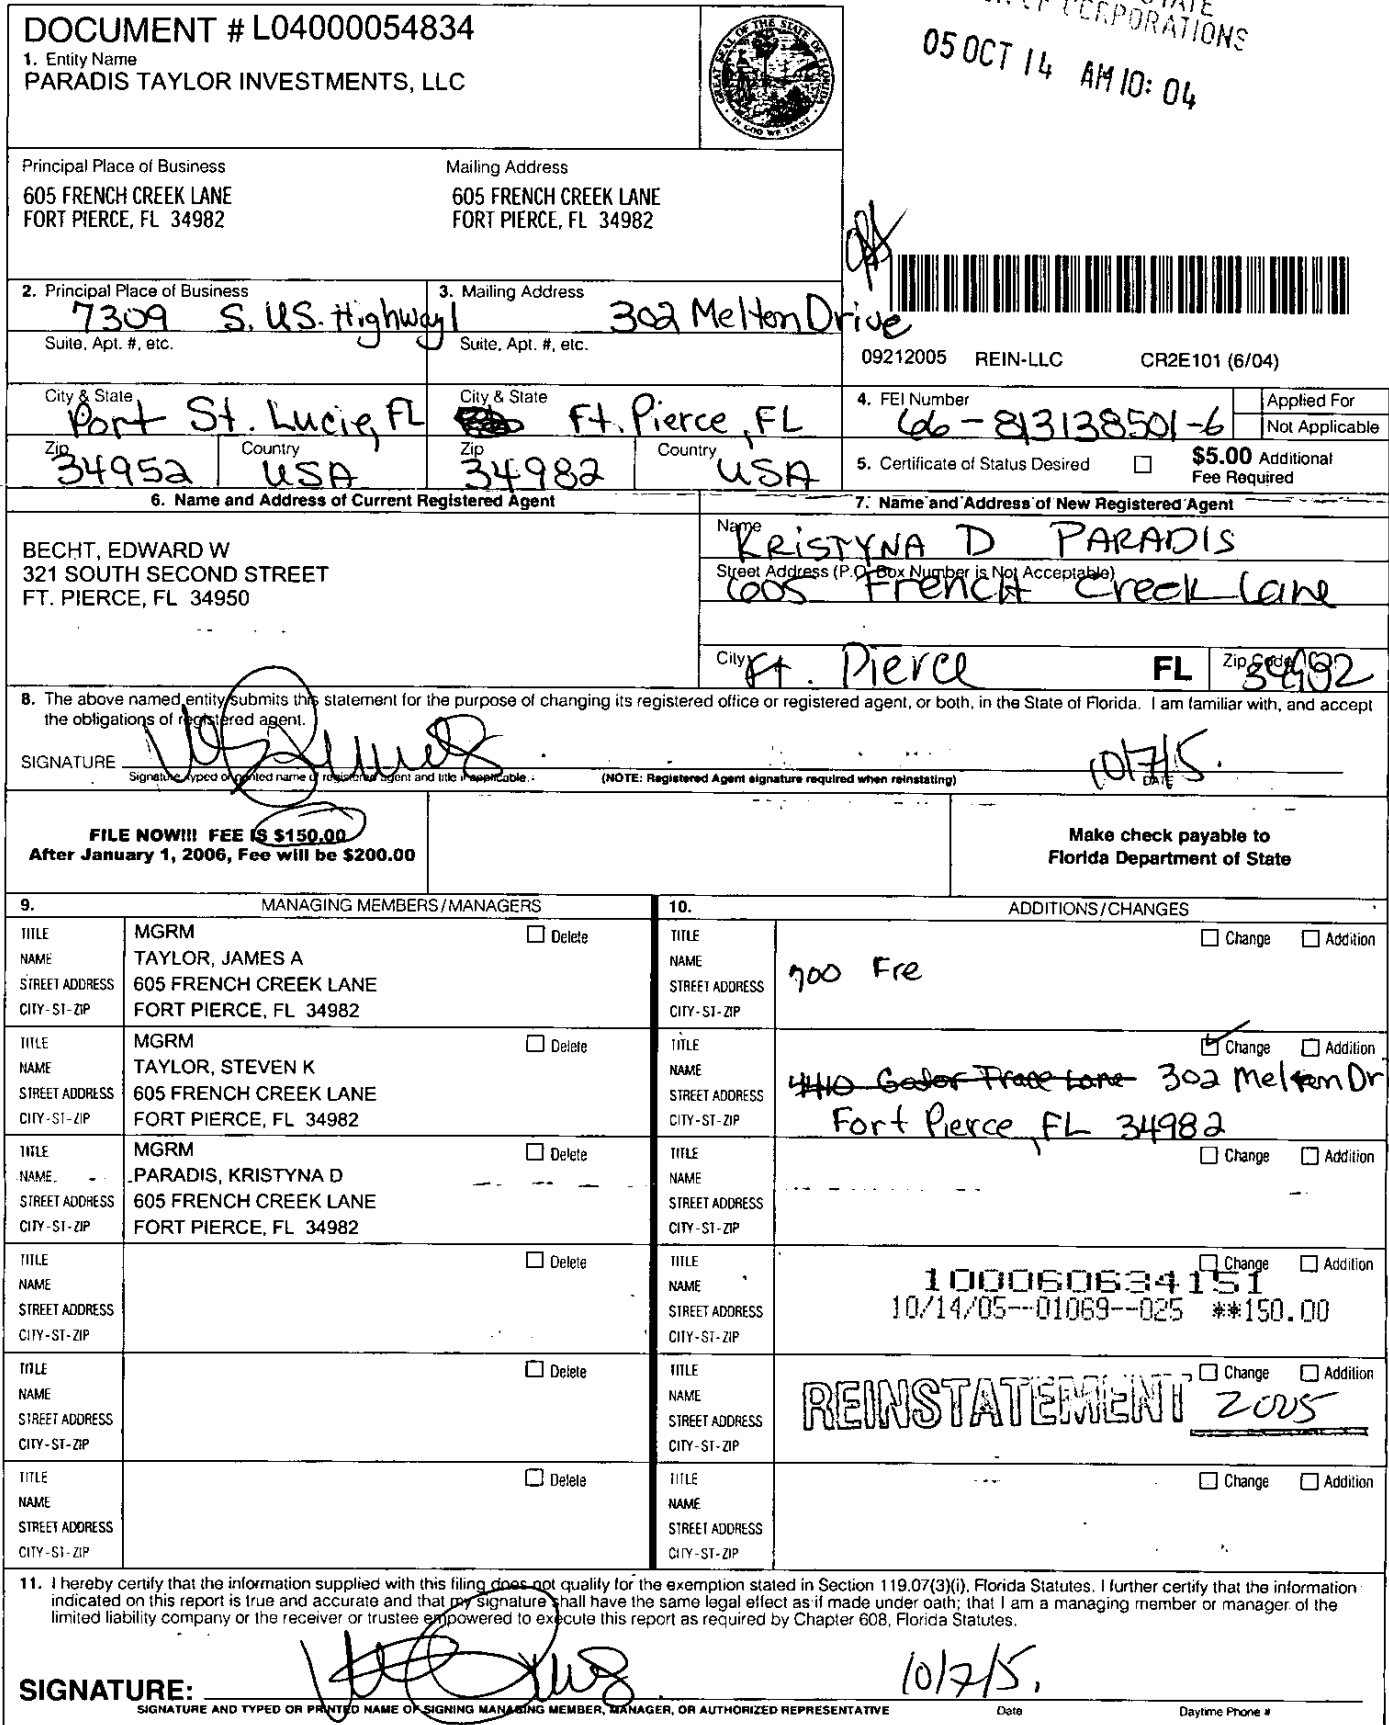 DOCUMENT # L04000054834
1. Entity Name
PARADIS TAYLOR INVESTMENTS, LLC
GREAT SEAL OF THE STATE OF FLORIDA
IN GOD WE TRUST
CORPORATIONS
05 OCT 14 AM 10: 04
Principal Place of Business
605 FRENCH CREEK LANE
FORT PIERCE, FL 34982
Mailing Address
605 FRENCH CREEK LANE
FORT PIERCE, FL 34982
2. Principal Place of Business
7309 S. US. Highway 1
Suite, Apt. #, etc.
City & State
Port St. Lucie, FL
Zip
34952
Country
USA
3. Mailing Address
302 Melton Drive
Suite, Apt. #, etc.
City & State
Ft. Pierce, FL
Zip
34982
Country
USA
09212005 REIN-LLC CR2E101 (6/04)
4. FEI Number
66-813138501-6
Applied For
Not Applicable
5. Certificate of Status Desired
$5.00 Additional
Fee Required
6. Name and Address of Current Registered Agent
BECHT, EDWARD W
321 SOUTH SECOND STREET
FT. PIERCE, FL 34950
7. Name and Address of New Registered Agent
Name
KRISTYNA D PARADIS
Street Address (P.O. Box Number is Not Acceptable)
605 French Creek Lane
City
Ft. Pierce
FL
Zip Code
34982
8. The above named entity submits this statement for the purpose of changing its registered office or registered agent, or both, in the State of Florida. I am familiar with, and accept
the obligations of registered agent.
SIGNATURE
10/7/5.
Signature, typed or printed name of registered agent and title if applicable.
(NOTE: Registered Agent signature required when reinstating)
DATE
FILE NOW!!! FEE IS $150.00
After January 1, 2006, Fee will be $200.00
Make check payable to
Florida Department of State
9. MANAGING MEMBERS/MANAGERS
TITLE MGRM Delete
NAME TAYLOR, JAMES A
STREET ADDRESS 605 FRENCH CREEK LANE
CITY-ST-ZIP FORT PIERCE, FL 34982
TITLE MGRM Delete
NAME TAYLOR, STEVEN K
STREET ADDRESS 605 FRENCH CREEK LANE
CITY-ST-ZIP FORT PIERCE, FL 34982
TITLE MGRM Delete
NAME PARADIS, KRISTYNA D
STREET ADDRESS 605 FRENCH CREEK LANE
CITY-ST-ZIP FORT PIERCE, FL 34982
TITLE Delete
NAME
STREET ADDRESS
CITY-ST-ZIP
TITLE Delete
NAME
STREET ADDRESS
CITY-ST-ZIP
TITLE Delete
NAME
STREET ADDRESS
CITY-ST-ZIP
10. ADDITIONS/CHANGES
TITLE Change Addition
NAME
STREET ADDRESS 700 Fre
CITY-ST-ZIP
TITLE Change Addition
NAME
STREET ADDRESS 4410 Gator Trace Lane 302 Melton Dr
CITY-ST-ZIP Fort Pierce, FL 34982
TITLE Change Addition
NAME
STREET ADDRESS
CITY-ST-ZIP
TITLE Change Addition
NAME 100060634151
STREET ADDRESS 10/14/05--01069--025 **150.00
CITY-ST-ZIP
TITLE Change Addition
NAME REINSTATEMENT 2005
STREET ADDRESS
CITY-ST-ZIP
TITLE Change Addition
NAME
STREET ADDRESS
CITY-ST-ZIP
11. I hereby certify that the information supplied with this filing does not qualify for the exemption stated in Section 119.07(3)(i), Florida Statutes. I further certify that the information
indicated on this report is true and accurate and that my signature shall have the same legal effect as if made under oath; that I am a managing member or manager of the
limited liability company or the receiver or trustee empowered to execute this report as required by Chapter 608, Florida Statutes.
SIGNATURE:
10/7/5.
SIGNATURE AND TYPED OR PRINTED NAME OF SIGNING MANAGING MEMBER, MANAGER, OR AUTHORIZED REPRESENTATIVE
Date
Daytime Phone #